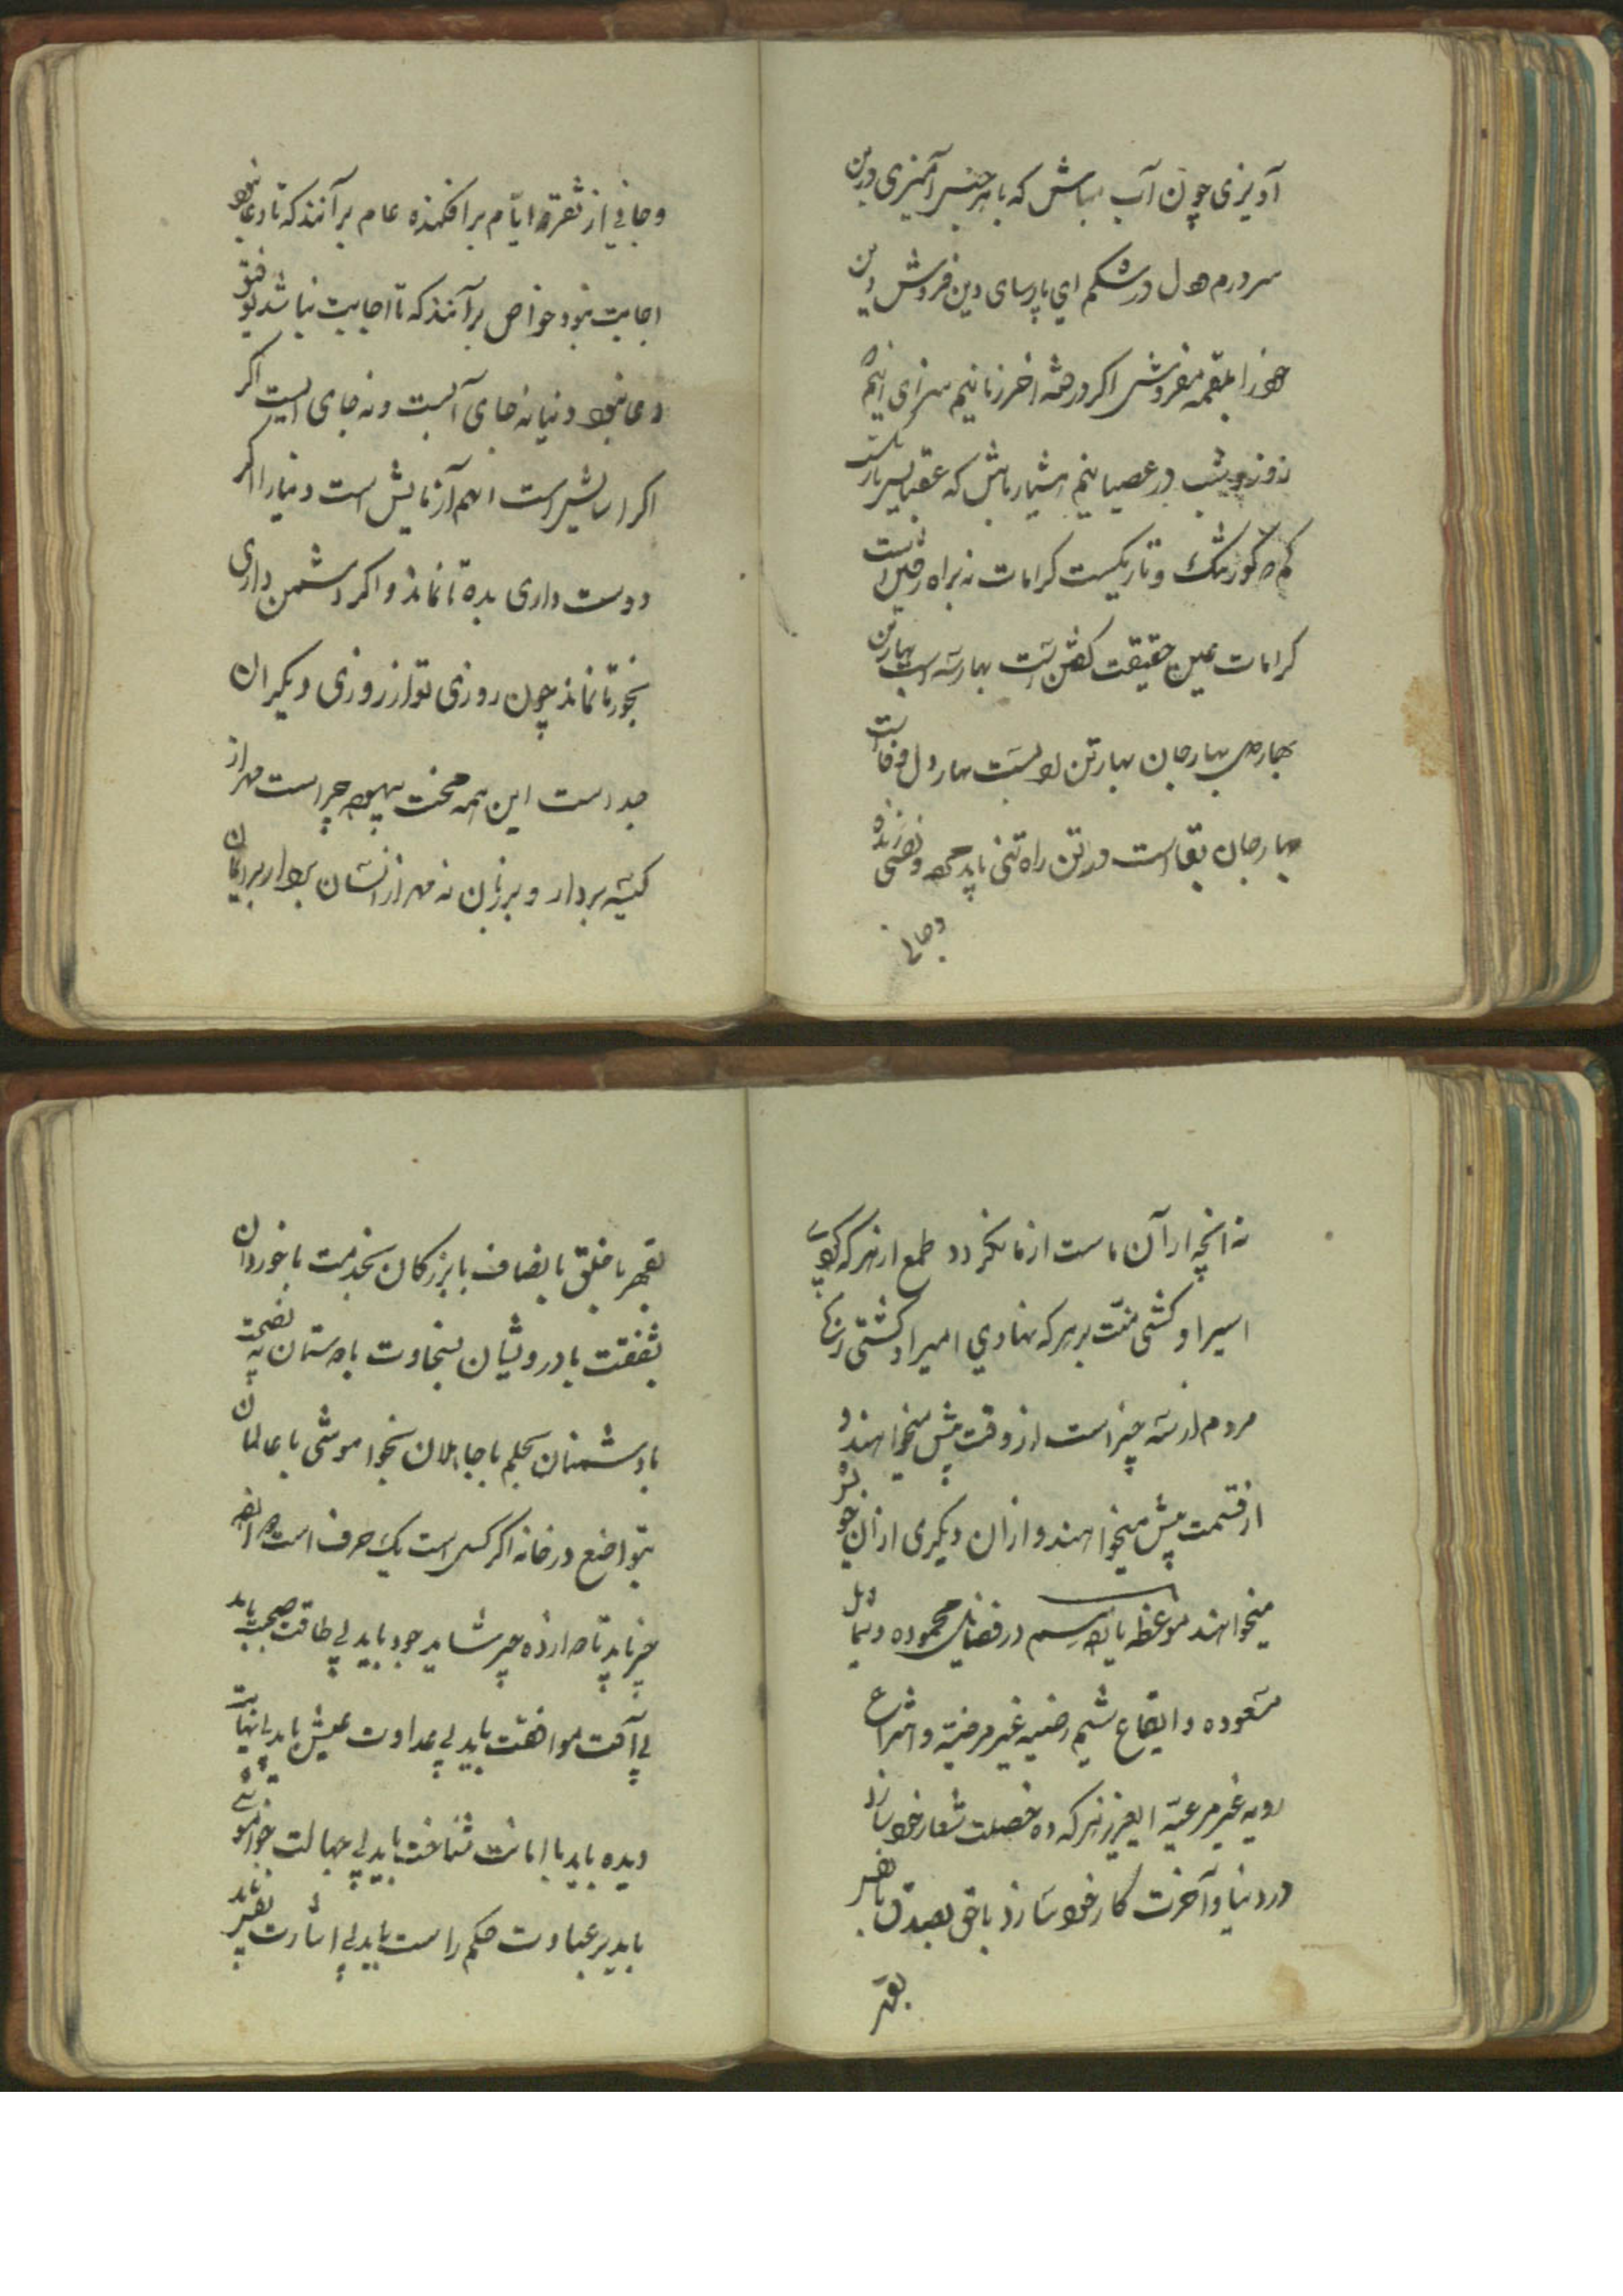 آویزی چون آب مباش که با هر خس آمیزی درین
سر درم هول در شکم ای پارسای دین فروش دین
خود را بلقمه مفروش اگر در همه اخر زمانیم سزای اینم
روز و شب در عصیانیم هشیار باش که عقبه بس باریکست
که گور تنگ و تاریکست کرامات نه براه رفتن است
کرامات عین حقیقت گفتن است بهار سه است بهار تن
بهار دل بهار جان بهار تن بهار دل وفا است
بهار جان بقا است در تن راه تنی باید زنده
وجانی
وجانی از تفرقه ایام برافکنده عام برآنند که تا دعا نبود
اجابت نبود خواص برآنند که تا اجابت نباشد توفیق
دعا نبود دنیا نه جای آنست و نه جای اینست اگر
اگر است انهم آزمایش است دنیا را اگر
دوست داری بده تا نماند و اگر دشمن داری
بخور تا نماند چون روزی تو از روزی دیگران
جداست این همه محنت بیهوده چراست مهر از
کیسه بردار و بر زبان نه مهر از نشان بردار بر ایمان
نه انچه از آن ماست از ما نگردد طمع از هر که کردی
اسیر او گشتی منت بر هر که نهادی امیر او گشتی زنهار
مردم از سه چیز است از وقت پیش میخواهند و
از قسمت بیش میخواهند و از آن دیگری از آن خود
میخواهند موعظه یازدهم در فضایل محموده و شمایل
مسعوده و ایقاع شیم رضیه غیر مرضیه و اشراع
رویه غیر مرعیه ایعزیز هر که ده خصلت شعار خود سازد
در دنیا و آخرت کار خود سازد با حق بصدق با نفس
بقهر
بقهر با خلق بانصاف با بزرگان بخدمت با خوردان
بشفقت با درویشان بسخاوت با دوستان به نصیحت
با دشمنان بحلم با جاهلان بخواموشی با عالمان
بتواضع در خانه اگر کس است یک حرف است
باید بی طاقت صحبت باید
بی آفت موافقت باید بی عداوت عیش باید بی نهایت
دیده باید با امانت شناخت باید بی جهالت خواموشی
باید بر عبادت حکم راست باید بی اشارت